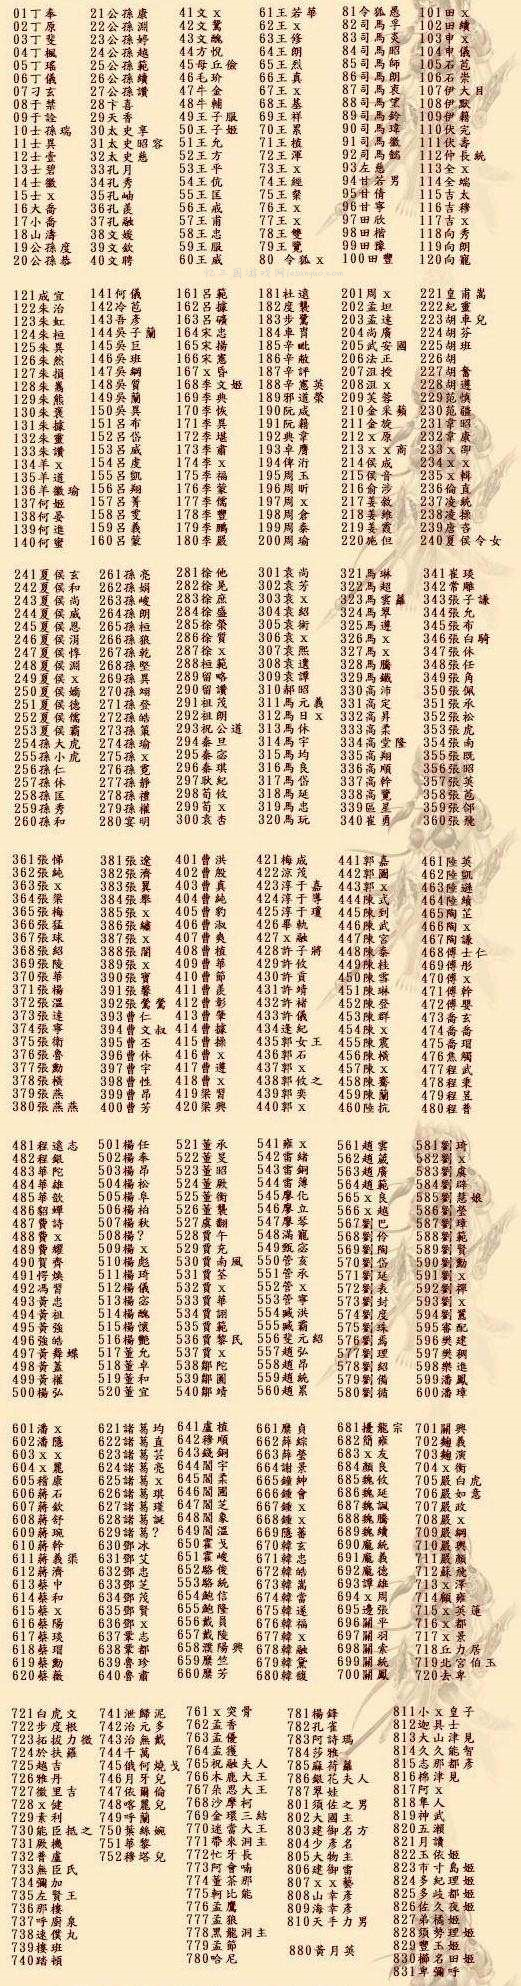 01丁奉
02丁原
03丁斐
04丁楓
05丁瑤
06丁儀
07刁玄
08于禁
09于詮
10士孫瑞
11士異
12士壹
13士碧
14士徽
15士x
16大喬
17小喬
18山濤
19公孫度
20公孫恭
21公孫康
22公孫淵
23公孫婷
24公孫越
25公孫範
26公孫續
27公孫讚
28卞喜
29天香
30太史享
31太史昭容
32太史慈
33孔月
34孔秀
35孔岫
36孔羨
37孔融
38文媛
39文欽
40文聘
41文x
42文鴦
43文醜
44方悅
45毋丘儉
46毛玠
47牛金
48牛輔
49王子服
50王子姬
51王允
52王方
53王平
54王伉
55王匡
56王戒
57王甫
58王忠
59王服
60王威
61王若華
62王x
63王修
64王朗
65王烈
66王真
67王x
68王基
69王祥
70王累
71王植
72王渾
73王x
74王經
75王粲
76王x
77王x
78王雙
79王觀
80 令狐x
81令狐愚
82司馬孚
83司馬炎
84司馬昭
85司馬師
86司馬朗
87司馬衷
88司馬望
89司馬鈴
90司馬瑋
91司馬徽
92司馬懿
93左慈
94甘若男
95甘倩
96甘寧
97田欣
98田楷
99田豫
100田豐
101田x
102田續
103申x
104申儀
105石苞
106石崇
107伊大目
108伊默
109伊籍
110伏完
111伏壽
112仲長統
113全x
114全端
115吉太
116吉穆
117吉x
118向秀
119向朗
120向寵
121成宜
122朱治
123朱虹
124朱桓
125朱異
126朱然
127朱損
128朱鳶
129朱熊
130朱褒
131朱據
132朱靈
133朱讚
134羊x
135羊道
136羊徽瑜
137何姬
138何晏
139何進
140何蜜
141何儀
142冷苞
143吾彥
144吳子蘭
145吳巨
146吳班
147吳綱
148吳質
149吳蘭
150吳異
151呂布
152呂岱
153呂威
154呂虔
155呂凱
156呂翔
157呂菁
158呂雯
159呂義
160呂蒙
161呂範
162呂據
163呂曠
164宋忠
165宋揚
166宋憲
167x昏
168李文姬
169李典
170李恢
171李異
172李堪
173李肅
174李x
175李福
176李蒙
177李儒
178李豐
179李鵬
180李嚴
181杜遠
182度襲
183步騭
184車胄
185辛毗
186辛敞
187辛評
188辛憲英
189邢道榮
190阮成
191阮籍
192典韋
193卓膺
194俾衍
195周玉
196周昕
197周x
198周倉
199周泰
200周瑜
201周x
202孟坦
203孟達
204尚廣
205武安國
206法正
207沮授
208沮x
209芙蓉
210金采蘋
211金旋
212x原
213x x商
214侯成
215侯音
216俞涉
217姜敘
218姜維
219姜霞
220施但
221皇甫嵩
222紀靈
223胡車兒
224胡芬
225胡班
226胡
227胡奮
228胡遵
229范慎
230范疆
231韋昭
232韋康
233x卲
234x x
235x輯
236倫直
237凌統
238凌操
239唐咨
240夏侯令女
241夏侯玄
242夏侯和
243夏侯尚
244夏侯威
245夏侯恩
246夏侯涓
247夏侯惇
248夏侯淵
249夏侯x
250夏侯嬌
251夏侯德
252夏侯儒
253夏侯霸
254孫大虎
255孫小虎
256孫仁
257孫休
258孫匡
259孫秀
260孫和
261孫亮
262孫娟
263孫峻
264孫朗
265孫桓
266孫狼
267孫乾
268孫堅
269孫異
270孫翊
271孫登
272孫皓
273孫策
274孫瑜
275孫x
276孫霓
277孫靜
278孫禮
279孫權
280宴明
281徐他
282徐晃
283徐庶
284徐盛
285徐榮
286徐質
287徐x
288桓範
289留略
290留讚
291祖茂
292祖朗
293祝公道
294秦旦
295秦宓
296秦琪
297耿紀
298荀攸
299荀x
300袁杏
301袁尚
302袁芳
303袁x
304袁紹
305袁術
306袁x
307袁熙
308袁遺
309袁譚
310郝昭
311馬元義
312馬日x
313馬休
314馬宇
315馬均
316馬良
317馬岱
318馬延
319馬忠
320馬玩
321馬琳
322馬超
323馬雲蘿
324馬翠
325馬遵
326馬x
327馬x
328馬騰
329馬鐵
330高沛
331高定
332高昇
333高柔
334高堂隆
335高翔
336高順
337高幹
338高覽
339區星
340崔勇
341崔琰
342常雕
343張子謙
344張允
345張布
346張白騎
347張休
348張任
349張角
350張佩
351張承
352張松
353張虎
354張南
355張既
356張昭
357張英
358張苞
359張郃
360張飛
361張悌
362張純
363張x
364張梁
365張梅
366張猛
367張球
368張紹
369張陵
370張華
371張楊
372張溫
373張達
374張寧
375張衛
376張魯
377張勳
378張橫
379張燕
380張燕燕
381張遼
382張濟
383張翼
384張舉
385張x
386張繡
387張x
388張闓
389張x
390張寶
391張馨
392張鶯鶯
393曹仁
394曹文叔
395曹丕
396曹休
397曹宇
398曹性
399曹昂
400曹芳
401曹洪
402曹殷
403曹真
404曹純
405曹豹
406曹淑
407曹爽
408曹植
409曹華
410曹節
411曹羨
412曹彰
413曹肇
414曹據
415曹操
416曹x
417曹遵
418曹x
419梁習
420梁興
421梅成
422涼茂
423淳于嘉
424淳于導
425淳于瓊
426畢軌
427x融
428許子將
429許攸
430許貢
431許靖
432許褚
433許儀
434逢紀
435郭女王
436郭石
437郭x
438郭攸之
439郭奕
440郭x
441郭嘉
442郭圖
443郭x
444陳式
445陳到
446陳武
447陳宮
448陳泰
449陳桂
450陳雪
451陳琳
452陳登
453陳群
454陳x
455陳震
456陳橫
457陳x
458陳騫
459陳蘭
460陸抗
461陸英
462陸凱
463陸遜
464陸續
465陶芷
466陶x
467陶謙
468傅士仁
469傅彤
470傅x
471傅幹
472傅嬰
473喬玄
474喬喬
475喬瑁
476焦觸
477程武
478程秉
479程昱
480程普
481程遠志
482程銀
483華陀
484華雄
485華歆
486貂蟬
487費詩
488費x
489費耀
490賀齊
491愕煥
492馮習
493黃忠
494黃祖
495黃強
496強皓
497黃舞蝶
498黃蓋
499黃權
500楊弘
501楊任
502楊奉
503楊昂
504楊松
505楊阜
506楊柏
507楊秋
508楊?
509楊x
510楊彪
511楊琦
512楊儀
513楊宓
514楊醜
515楊懷
516楊艷
517董允
518董卓
519董和
520董宜
521董承
522董旻
523董昭
524董厥
525董衡
526董襲
527虞翻
528賈午
529賈充
530賈南風
531賈荃
532賈x
533賈華
534賈詡
535賈範
536賈黎民
537賈x
538鄒陀
539鄒圖
540鄒靖
541雍x
542雷緒
543雷銅
544雷薄
545廖化
546廖立
547廖琴
548滿寵
549甄宓
550管亥
551管承
552管x
553管寧
554臧洪
555臧霸
556斐元紹
557趙弘
558趙昂
559趙統
560趙累
561趙雲
562趙葳
563趙廣
564趙範
565x良
566x越
567劉巴
568劉伶
569劉陶
570劉岱
571劉延
572劉表
573劉封
574劉度
575劉珠
576劉焉
577劉理
578劉紹
579劉備
580劉循
581劉琦
582劉x
583劉虞
584劉辟
585劉慧娘
586劉瑩
587劉璋
588劉範
589劉賢
590劉勳
591劉x
592劉禪
593劉x
594劉麗
595審配
596樊建
597樊稠
598樂進
599潘鳳
600潘璋
601潘x
602潘隱
603x x
604x麗
605稽康
606蔣石
607蔣欽
608蔣舒
609蔣琬
610蔣幹
611蔣義渠
612蔣濟
613蔡中
614蔡和
615蔡x
616蔡陽
617蔡琰
618蔡瑁
619蔡勳
620蔡薇
621諸葛均
622諸葛直
623諸葛芸
624諸葛亮
625諸葛x
626諸葛琪
627諸葛瑾
628諸葛誕
629諸葛?
630鄧冰
631鄧艾
632鄧忠
633鄧芝
634鄧茂
635鄧賢
636鄧x
637鞏志
638鞏都
639魯珍
640魯肅
641盧植
642穆順
643錢銅
644閻宇
645閻柔
646閻圃
647閻芝
648閻象
649閻溫
650霍戈
651霍峻
552駱俊
553駱統
654鮑信
655鮑隆
656戴員
657戴陵
658濮陽興
659糜竺
660糜芳
661糜貞
662薛綜
663薛瑩
664謝景
665鍾紳
666鍾會
667鍾x
668鍾x
669隱蕃
670韓玄
671韓忠
672韓皓
673韓嵩
674韓當
675韓遂
676韓福
677韓x
678韓融
679韓黨
680韓馥
681擾龍宗
682簡雍
683x友
684顏良
685魏攸
686魏延
687魏諷
688魏騰
689魏續
690龐統
691龐義
692龐德
693譚雄
694x周
695邊張
696關平
697關羽
698關索
699關統
700關鳳
701關興
702麴義
703麴演
704x衡
705嚴白虎
706嚴如意
707嚴政
708嚴x
709嚴綱
710嚴輿
711嚴顏
712蘇飛
713x澤
714顧雍
715x英蓮
716x都
717x景
718丘力居
719北宮伯玉
720去卑
721白虎文
722步度根
723拓拔力微
724於扶羅
725越吉
726雅丹
727徹里吉
728x健
729素利
730能臣抵之
731厥機
732普盧
733無臣氏
734彌加
735左賢王
736那樓
737呼廚泉
738速僕丸
739樓班
740蹋頓
741泄歸泥
742治元多
743治無戴
744千萬
745俄何燒戈
746月牙兒
747依爾倫
748喀麗兒
749呼蘭
750葉絲婉
751華黎
752穆塔兒
761x突骨
762孟香
763孟優
764孟獲
765祝融夫人
766木鹿大王
767朵思大王
768沙摩柯
769金環三結
770迷當大王
771帶來洞主
772忙牙長
773阿會喃
774董荼那
775軻比能
776孟鷹
777孟狼
778黑龍洞主
779孟節
780哈尼
781楊鋒
782孔雀
783阿詩瑪
784莎雅
785麻荷蘿
786銀花夫人
787翠娃
801須佐之男
802大國主
803建御名方
804少彥名
805大物主
806建御雷
807x x藝
808山幸彥
809海幸彥
810天手力男
880黃月英
811小x皇子
812迦具士
813大山津見
814久久能智
815志那都彥
816棉津見
817阿x
818隼人
819神武
820五瀨
821月讀
822玉依姬
823市寸島姬
824多紀理姬
825多歧都姬
826佐久夜姬
827弟橘姬
828須勢理姬
829豐玉姬
830櫛名田姬
831卑彌呼